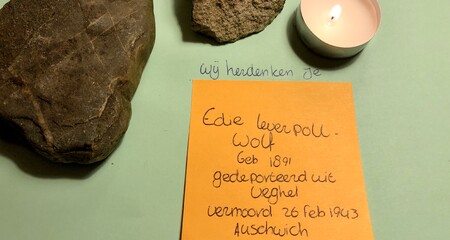 wij herdenken je
Edie leverpoll -
Wolf
Geb 1891
gedeporteerd uit
Veghel
vermoord 26 feb 1943
Auschwich